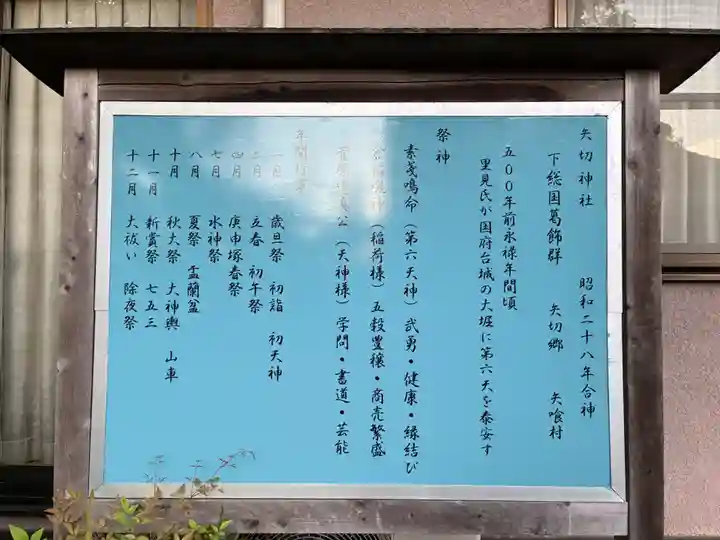 矢切神社　昭和二十八年合神
下総国葛飾群　矢切郷　矢喰村
五00年前永禄年間頃
里見氏が国府台城の大堀に第六天を奉安す
祭神
素戔鳴命（第六天神）武勇・健康・縁結び
（稲荷様）五穀豊穣・商売繁盛
公（天神様）学問・書道・芸能
年間行事
一月　歳旦祭　初詣　初天神
二月　立春　初午祭
四月　庚申塚春祭
七月　水神祭
八月　夏祭　盂蘭盆
十月　秋大祭　大神輿　山車
十一月　新嘗祭　七五三
十二月　大祓い　除夜祭